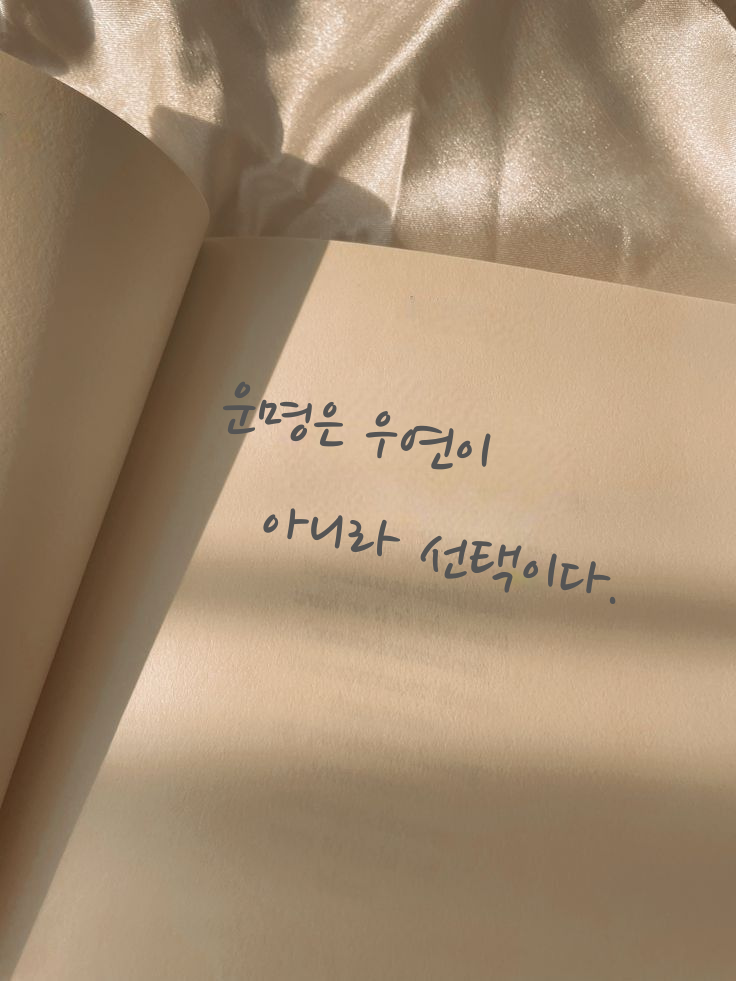 운명은 우연이
아니라 선택이다.